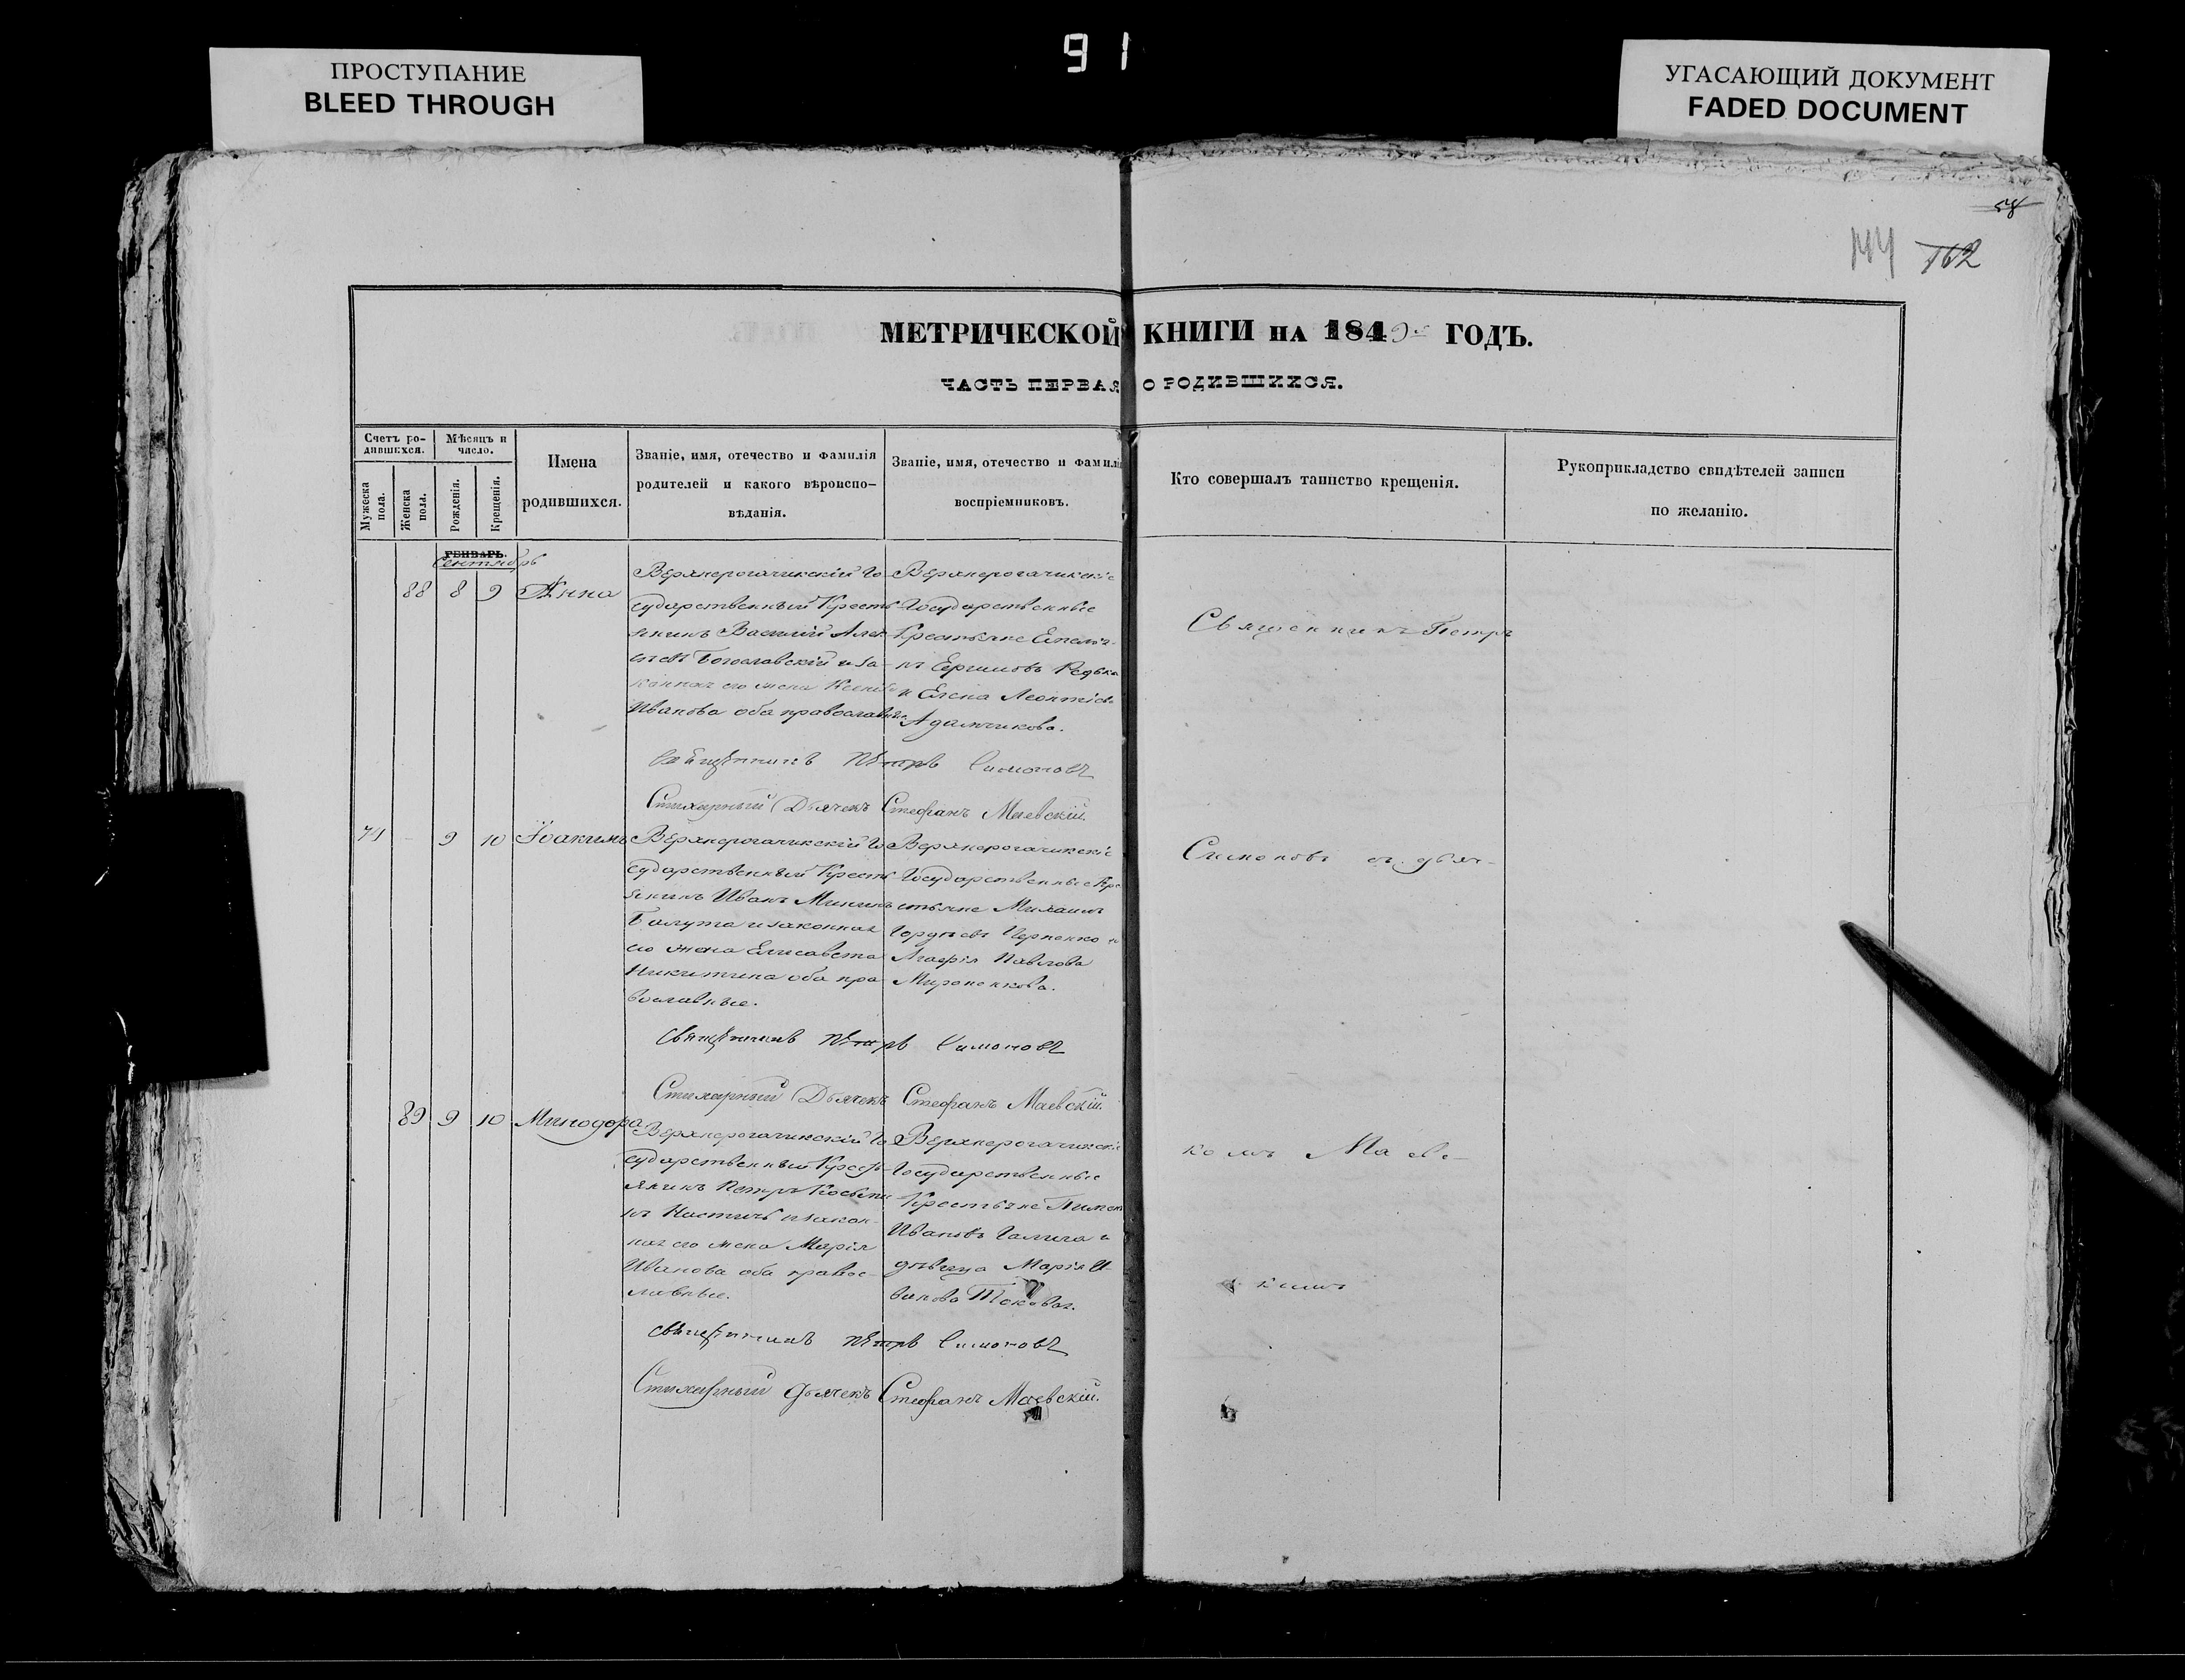 91
ПРОСТУПАНИЕ
BLEED THROUGH
УГАСАЮЩИЙ ДОКУМЕНТ
FADED DOCUMENT
58
144 162
МЕТРИЧЕСКОЙ КНИГИ НА 1849 ГОДЪ.
ЧАСТЬ ПЕРВАЯ О РОДИВШИХСЯ.
Счетъ ро-
дившихся.
Мужеска
пола.
Женска
пола.
Мѣсяцъ и
число.
Рожденія.
Крещенія.
Имена
родившихся.
Званіе, имя, отечество и фамилія
родителей и какого вѣроиспо-
вѣданія.
Званіе, имя, отечество и фамилі
воспріемниковъ.
Кто совершалъ таинство крещенія.
Рукоприкладство свидѣтелей записи
по желанію.
ГЕНВАРЬ.
Сентябрь
88 8 9 Анна
Верхнерогачикскій Го
сударственный Кресть
янинъ Василій Алек
Богославскій и за-
конная его жена Ксенія
Иванова оба православные
Верхнерогачикскіе
Государственные
Крестьяне
Ефимовъ Редька
и Елена Леонтіева
Адамчикова.
Священникъ Петръ Симоновъ
Стихарный Дьячекъ Стефанъ Маевскій.
74 - 9 10 Іоакимъ
Верхнерогачикскій Го
сударственный Кресть
янинъ Иванъ Мининъ
Балута и законная
его жена Елисавета
Никитина оба пра
вославные.
Верхнерогачикскіе
Государственные Кре
стьяне Михаилъ
Гордѣевъ Черненко и
Агафія Павлова
Мироненкова.
Священникъ Петръ Симоновъ
Стихарный Дьячекъ Стефанъ Маевскій.
89 9 10 Минодора
Верхнерогачикскій Го
сударственный Кресть
янинъ Петръ Косьми
нъ Настичъ и закон-
ная его жена Марія
Иванова оба правос-
лавные.
Верхнерогачикскіе
Государственные
Крестьяне Пимен
Ивановъ Галига и
дѣвица Марія И-
ванова Токовая.
Священникъ Петръ Симоновъ
Стихарный дьячекъ Стефанъ Маевскій.
Священникъ Петръ
Симоновъ съ дьяч-
комъ Маев-
скимъ